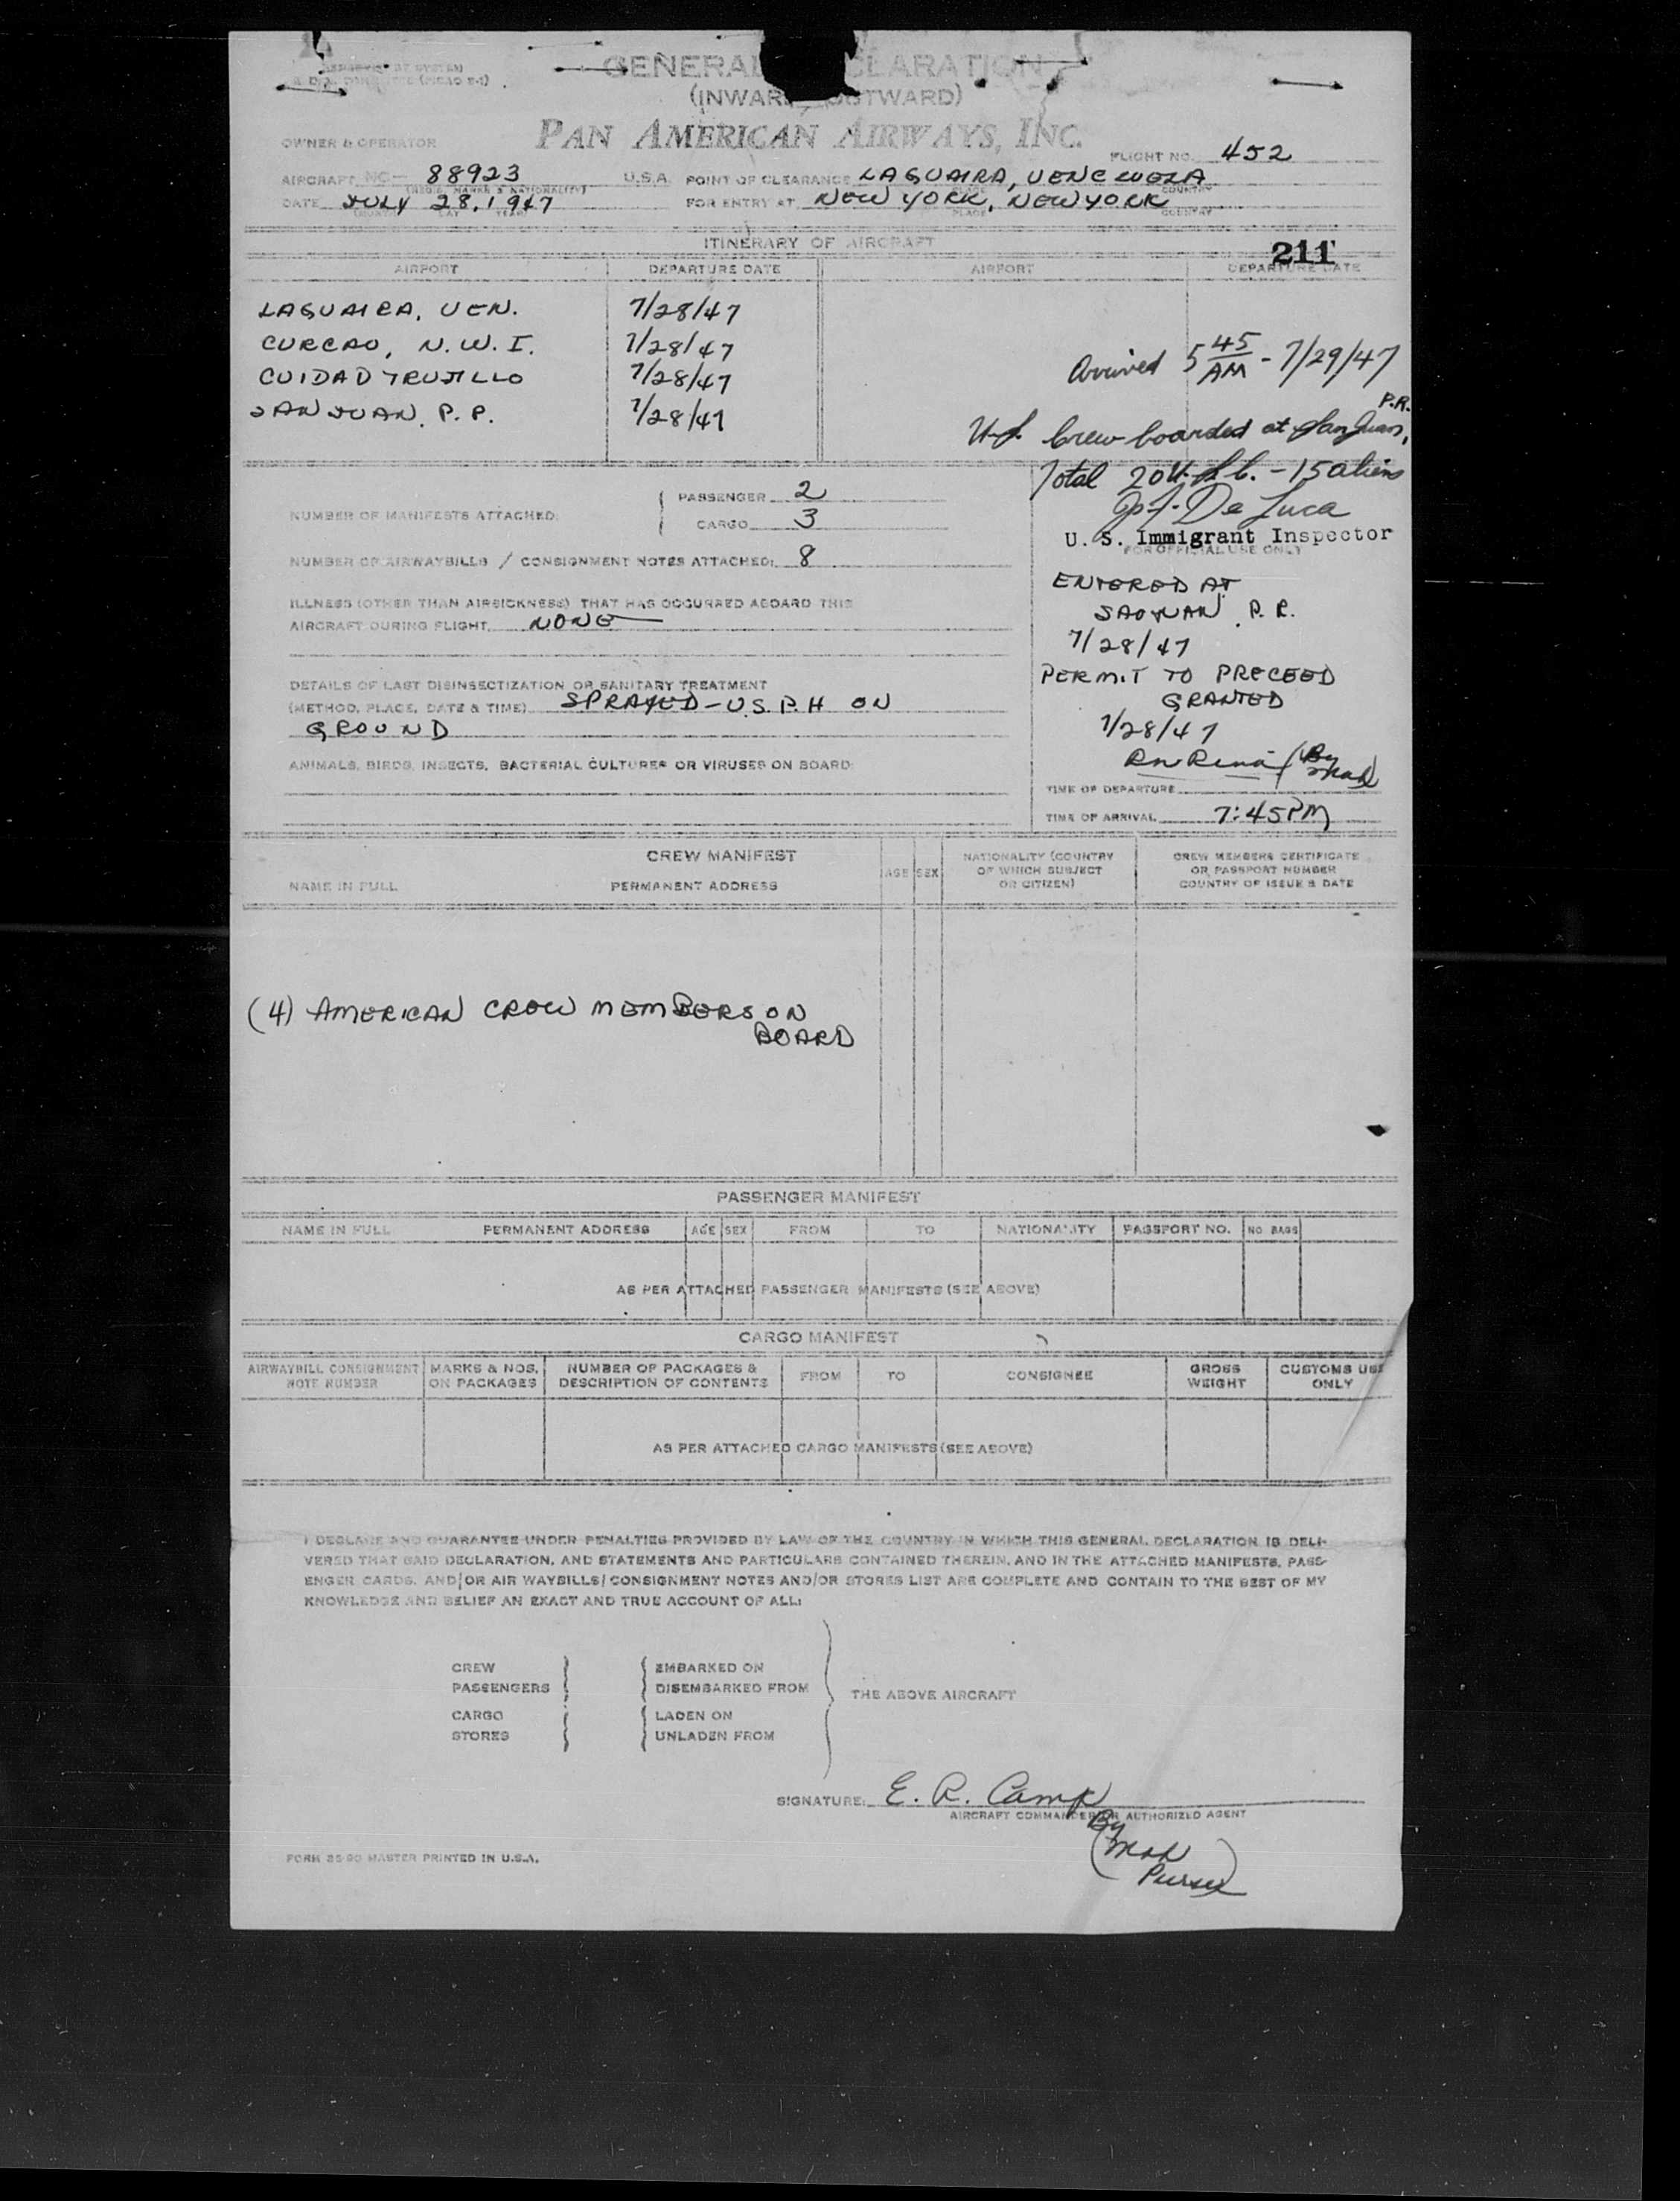 GENERAL DECLARATION
(INWARD, OUTWARD)
OWNER & OPERATOR PAN AMERICAN AIRWAYS, INC.
FLIGHT NO. 452
AIRCRAFT NC- 88923 U.S.A. POINT OF CLEARANCE LAGUAIRA,
(REGIS. MARKS & NATIONALITY) PLACE COUNTRY
DATE JULY 28, 1947 FOR ENTRY AT NEW YORK, NEW YORK
DAY YEAR PLACE COUNTRY
ITINERARY OF AIRCRAFT
211
AIRPORT DEPARTURE DATE AIRPORT DEPARTURE DATE
LAGUAIRA, VEN. 7/28/47
CURCAO, N.W.I. 7/28/47
Arrived 5 45 AM - 7/29/47
CUIDAD TRUJILLO 7/28/47
SAN JUAN, P.P. 7/28/47
P.R.
U.S. Crew boarded at San Juan,
Total 20 U.S.C. - 15 aliens
NUMBER OF MANIFESTS ATTACHED: PASSENGER 2
CARGO 3
De Luca
U. S. Immigrant Inspector
FOR OFFICIAL USE ONLY
NUMBER OF AIRWAYBILLS / CONSIGNMENT NOTES ATTACHED: 8
ENTERED AT
ILLNESS (OTHER THAN AIRSICKNESS) THAT HAS OCCURRED ABOARD THIS
P.R.
AIRCRAFT DURING FLIGHT. NONE
7/28/47
PERMIT TO PRECEED
DETAILS OF LAST DISINSECTIZATION OR SANITARY TREATMENT
(METHOD, PLACE, DATE & TIME) SPRAYED - U.S.P.H ON
GRANTED
GROUND
7/28/47
ANIMALS, BIRDS, INSECTS, BACTERIAL CULTURES OR VIRUSES ON BOARD:
(By
TIME OF DEPARTURE
TIME OF ARRIVAL 7:45PM
CREW MANIFEST
NAME IN FULL PERMANENT ADDRESS AGE SEX NATIONALITY (COUNTRY OF WHICH SUBJECT OR CITIZEN) CREW MEMBERS CERTIFICATE OR PASSPORT NUMBER COUNTRY OF ISSUE & DATE
(4) AMERICAN CREW MEMBERS ON
BOARD
PASSENGER MANIFEST
NAME IN FULL PERMANENT ADDRESS AGE SEX FROM TO NATIONALITY PASSPORT NO. NO. BAGS
AS PER ATTACHED PASSENGER MANIFESTS (SEE ABOVE)
CARGO MANIFEST
AIRWAYBILL CONSIGNMENT NOTE NUMBER MARKS & NOS. ON PACKAGES NUMBER OF PACKAGES & DESCRIPTION OF CONTENTS FROM TO CONSIGNEE GROSS WEIGHT CUSTOMS USE ONLY
AS PER ATTACHED CARGO MANIFESTS (SEE ABOVE)
I DECLARE AND GUARANTEE UNDER PENALTIES PROVIDED BY LAW OF THE COUNTRY IN WHICH THIS GENERAL DECLARATION IS DELI-
VERED THAT SAID DECLARATION, AND STATEMENTS AND PARTICULARS CONTAINED THEREIN, AND IN THE ATTACHED MANIFESTS, PASS-
ENGER CARDS, AND/OR AIR WAYBILLS/ CONSIGNMENT NOTES AND/OR STORES LIST ARE COMPLETE AND CONTAIN TO THE BEST OF MY
KNOWLEDGE AND BELIEF AN EXACT AND TRUE ACCOUNT OF ALL:
CREW EMBARKED ON
PASSENGERS DISEMBARKED FROM
THE ABOVE AIRCRAFT
CARGO LADEN ON
STORES UNLADEN FROM
SIGNATURE: E. R. Camp
AIRCRAFT COMMANDER OR AUTHORIZED AGENT
By
Purser
FORM 25-90 MASTER PRINTED IN U.S.A.